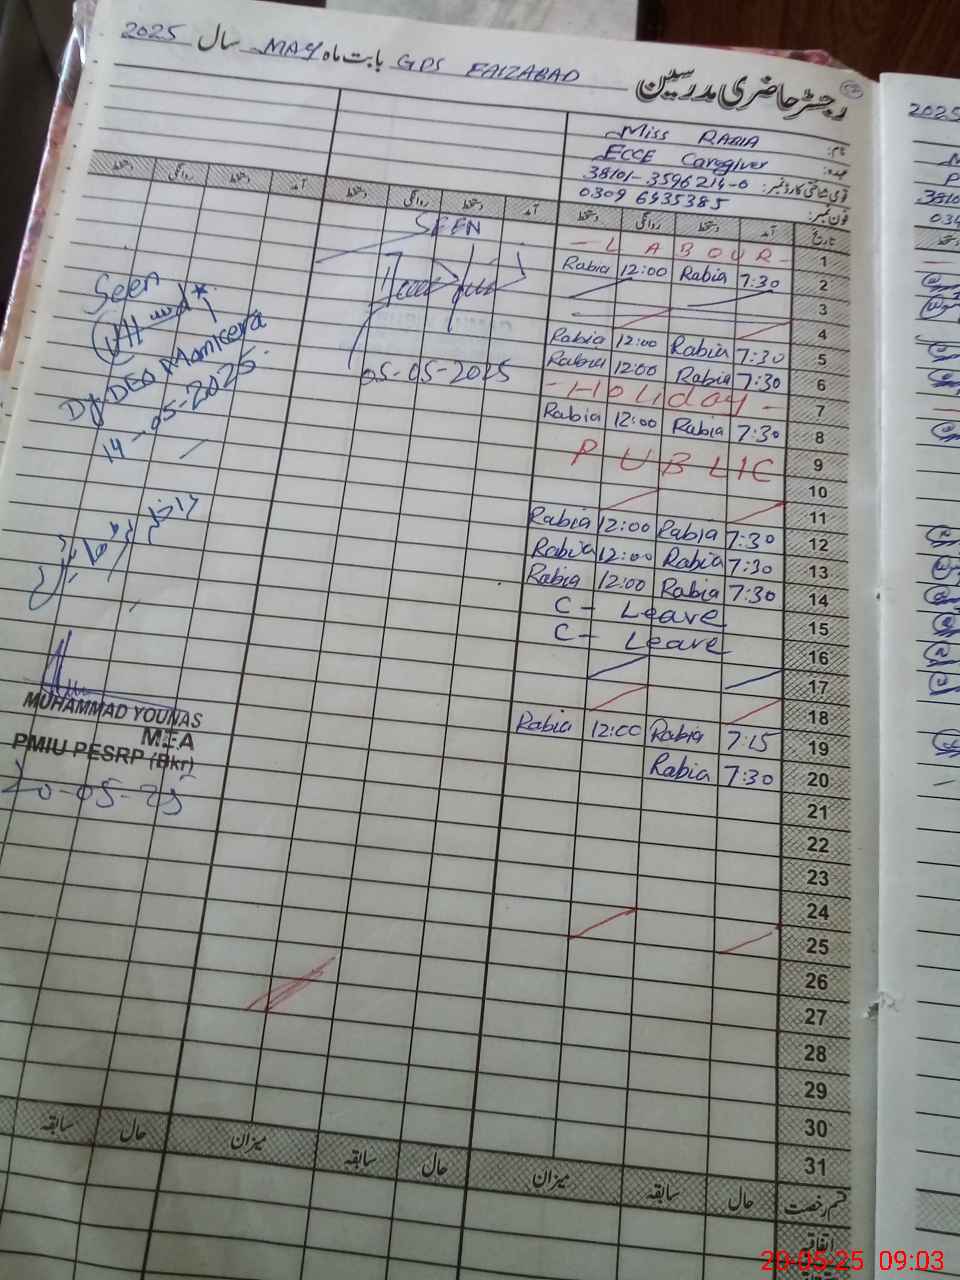 رجسٹر حاضری مدرسین GPS FAIZABAD بابت ماہ MAY سال 2025
نام: Miss RABIA
عہدہ: ECCE Caregiver
قومی شناختی کارڈ نمبر: 38101-3596214-0
فون نمبر: 0309 6935385
تاریخ آمد دستخط روانگی دستخط آمد دستخط روانگی دستخط آمد دستخط روانگی دستخط
1 - L A B O U R -
2 Rabia 12:00 Rabia 7:30
3
4
5 Rabia 12:00 Rabia 7:30
6 Rabia 12:00 Rabia 7:30
7 - Holiday -
8 Rabia 12:00 Rabia 7:30
9 P U B L I C
10
11
12 Rabia 12:00 Rabia 7:30
13 Rabia 12:00 Rabia 7:30
14 Rabia 12:00 Rabia 7:30
15 C - Leave
16 C - Leave
17
18
19 Rabia 12:00 Rabia 7:15
20 Rabia 7:30
21
22
23
24
25
26
27
28
29
30
31
قسم رخصت حال سابقہ میزان حال سابقہ میزان حال سابقہ
اتفاقیہ
SEEN
05-05-2025
Seen
Dy DEO Mankera
14-05-2025
MUHAMMAD YOUNAS
MEA
PMIU PESRP (Bkr)
20-05-25
2025
20-05-25 09:03